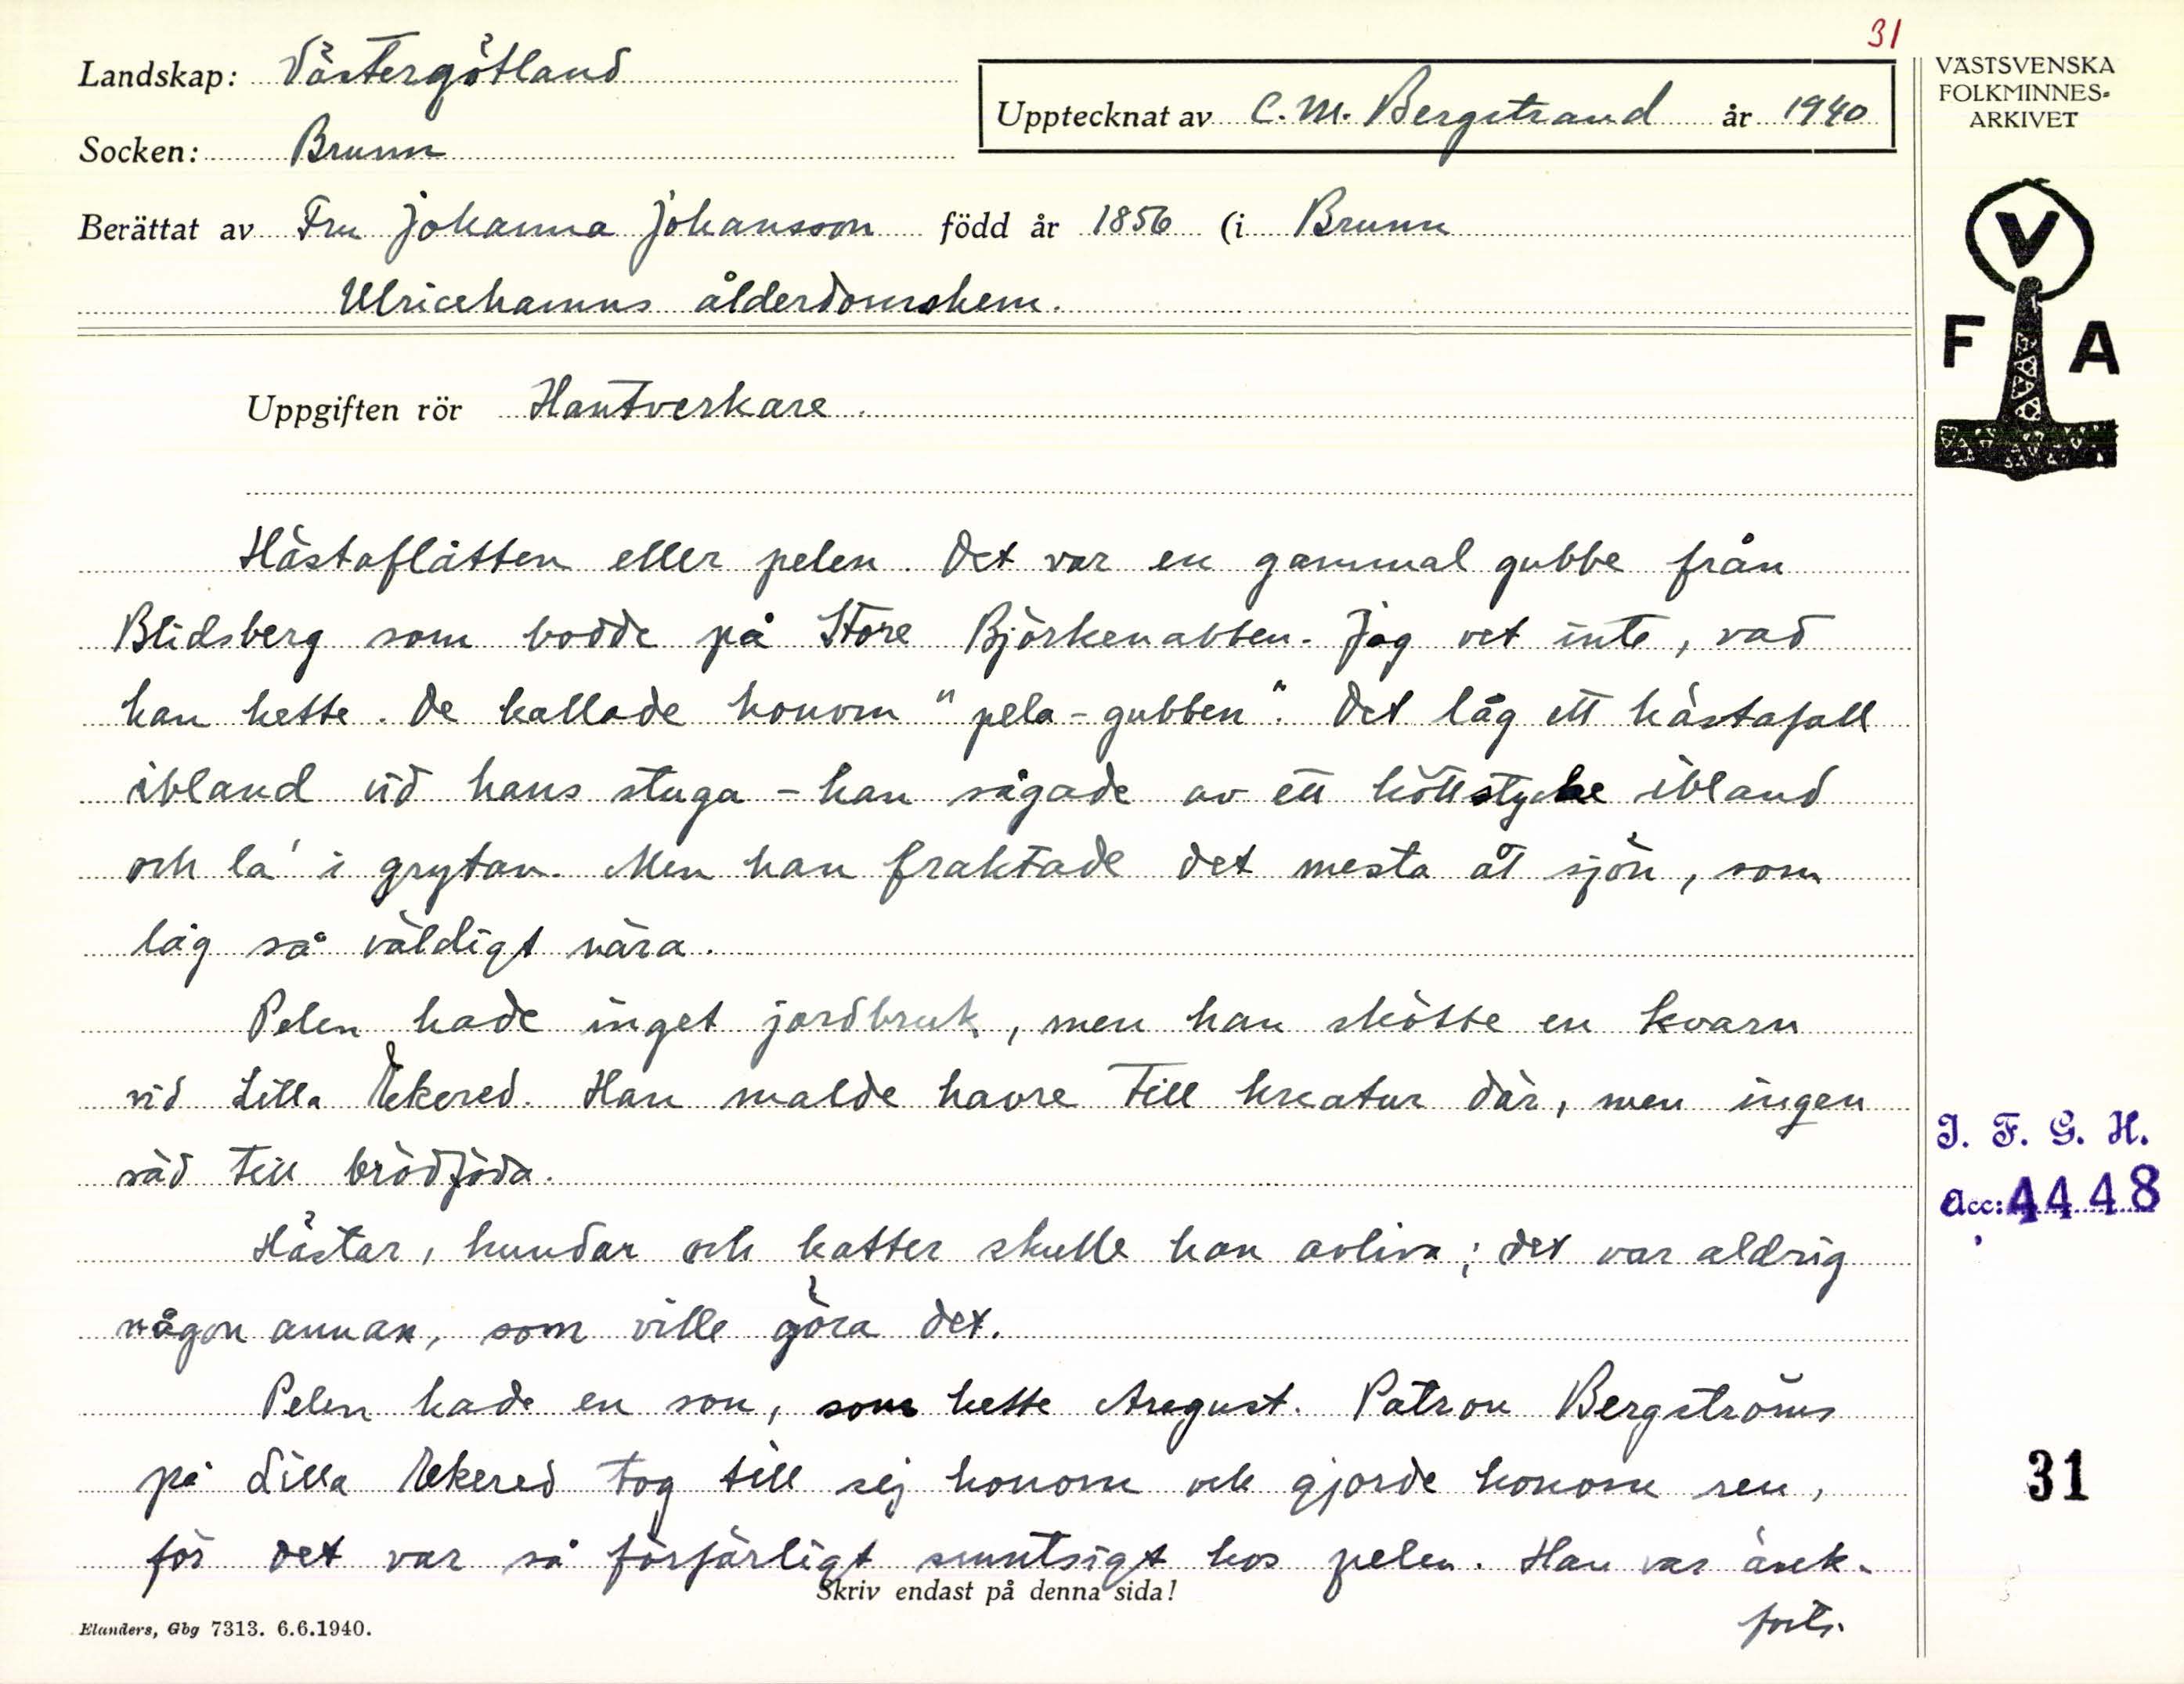 31
Landskap: Västergötland
Upptecknat av C. M. Bergstrand år 1940
VÄSTSVENSKA
FOLKMINNES-
ARKIVET
Socken: Brunn
Berättat av Fru Johanna Johansson född år 1856 (i Brunn
Ulricehamns ålderdomshem.
V
F A
Uppgiften rör Hantverkare.
Hästaflåtten eller pelen. Det var en gammal gubbe från
Blidsberg som bodde på Store Björkenabben. Jag vet inte, vad
han hette. De kallade honom "pela-gubben". Det låg ett hästafall
ibland vid hans stuga - han sågade av ett köttstycke ibland
och la' i grytan. Men han fraktade det mesta åt sjön, som
låg så väldigt nära.
Pelen hade inget jordbruk, men han skötte en kvarn
vid Lilla Ekered. Han malde havre till kreatur där, men ingen
säd till brödföda.
Hästar, hundar och katter skulle han avliva; det var aldrig
någon annan, som ville göra det.
Pelen hade en son, som hette August. Patron Bergströms
på Lilla Ekered tog till sej honom och gjorde honom ren,
för det var så förfärligt smutsigt hos pelen. Han var änk-
forts.
Skriv endast på denna sida!
Elanders, Gbg 7313. 6.6.1940.
I. F. G. H.
Acc: 4448
31